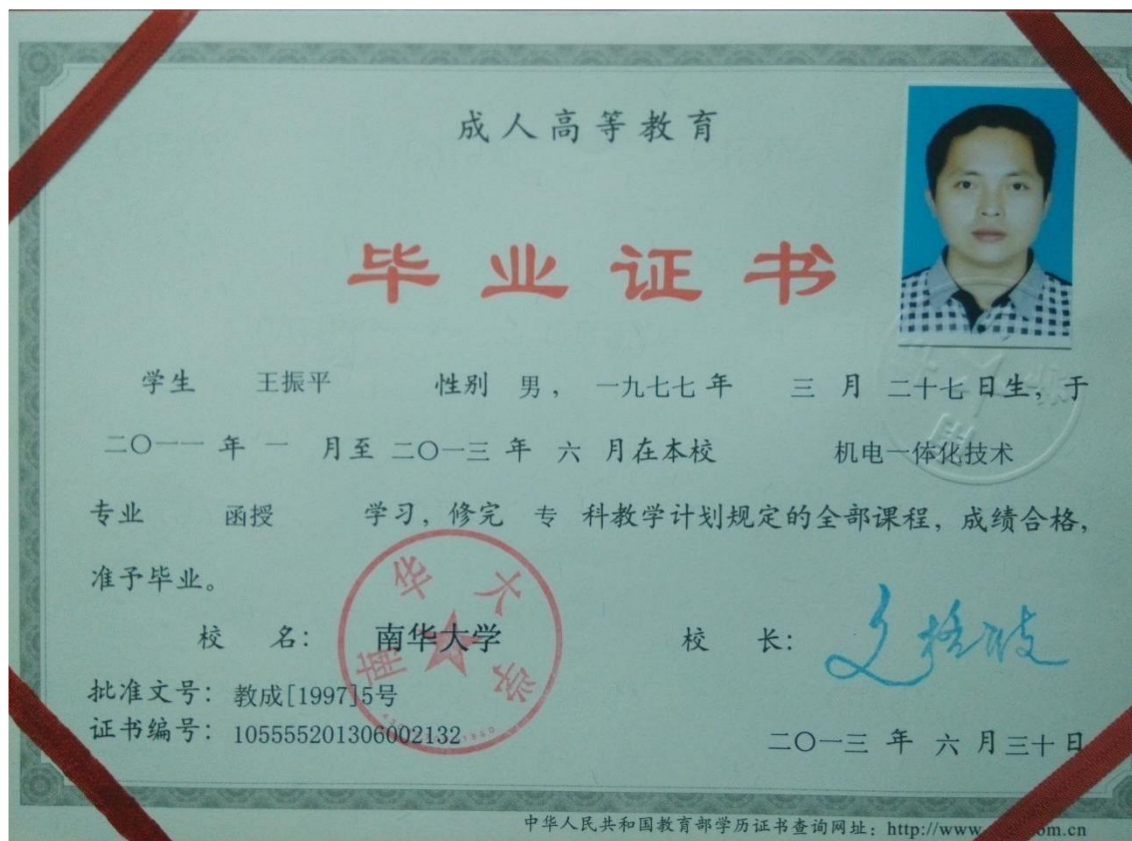 成人高等教育
毕业证书
学生 王振平 性别 男， 一九七七 年 三 月 二十七 日生，于
二〇一一 年 一 月至 二〇一三 年 六 月在本校 机电一体化技术
专业 函授 学习，修完 专 科教学计划规定的全部课程，成绩合格，
准予毕业。
校 名： 南华大学 校 长：
南华大学
批准文号：教成[1997]5号
证书编号：105555201306002132
二〇一三 年 六 月三十日
中华人民共和国教育部学历证书查询网址：http://www. om.cn